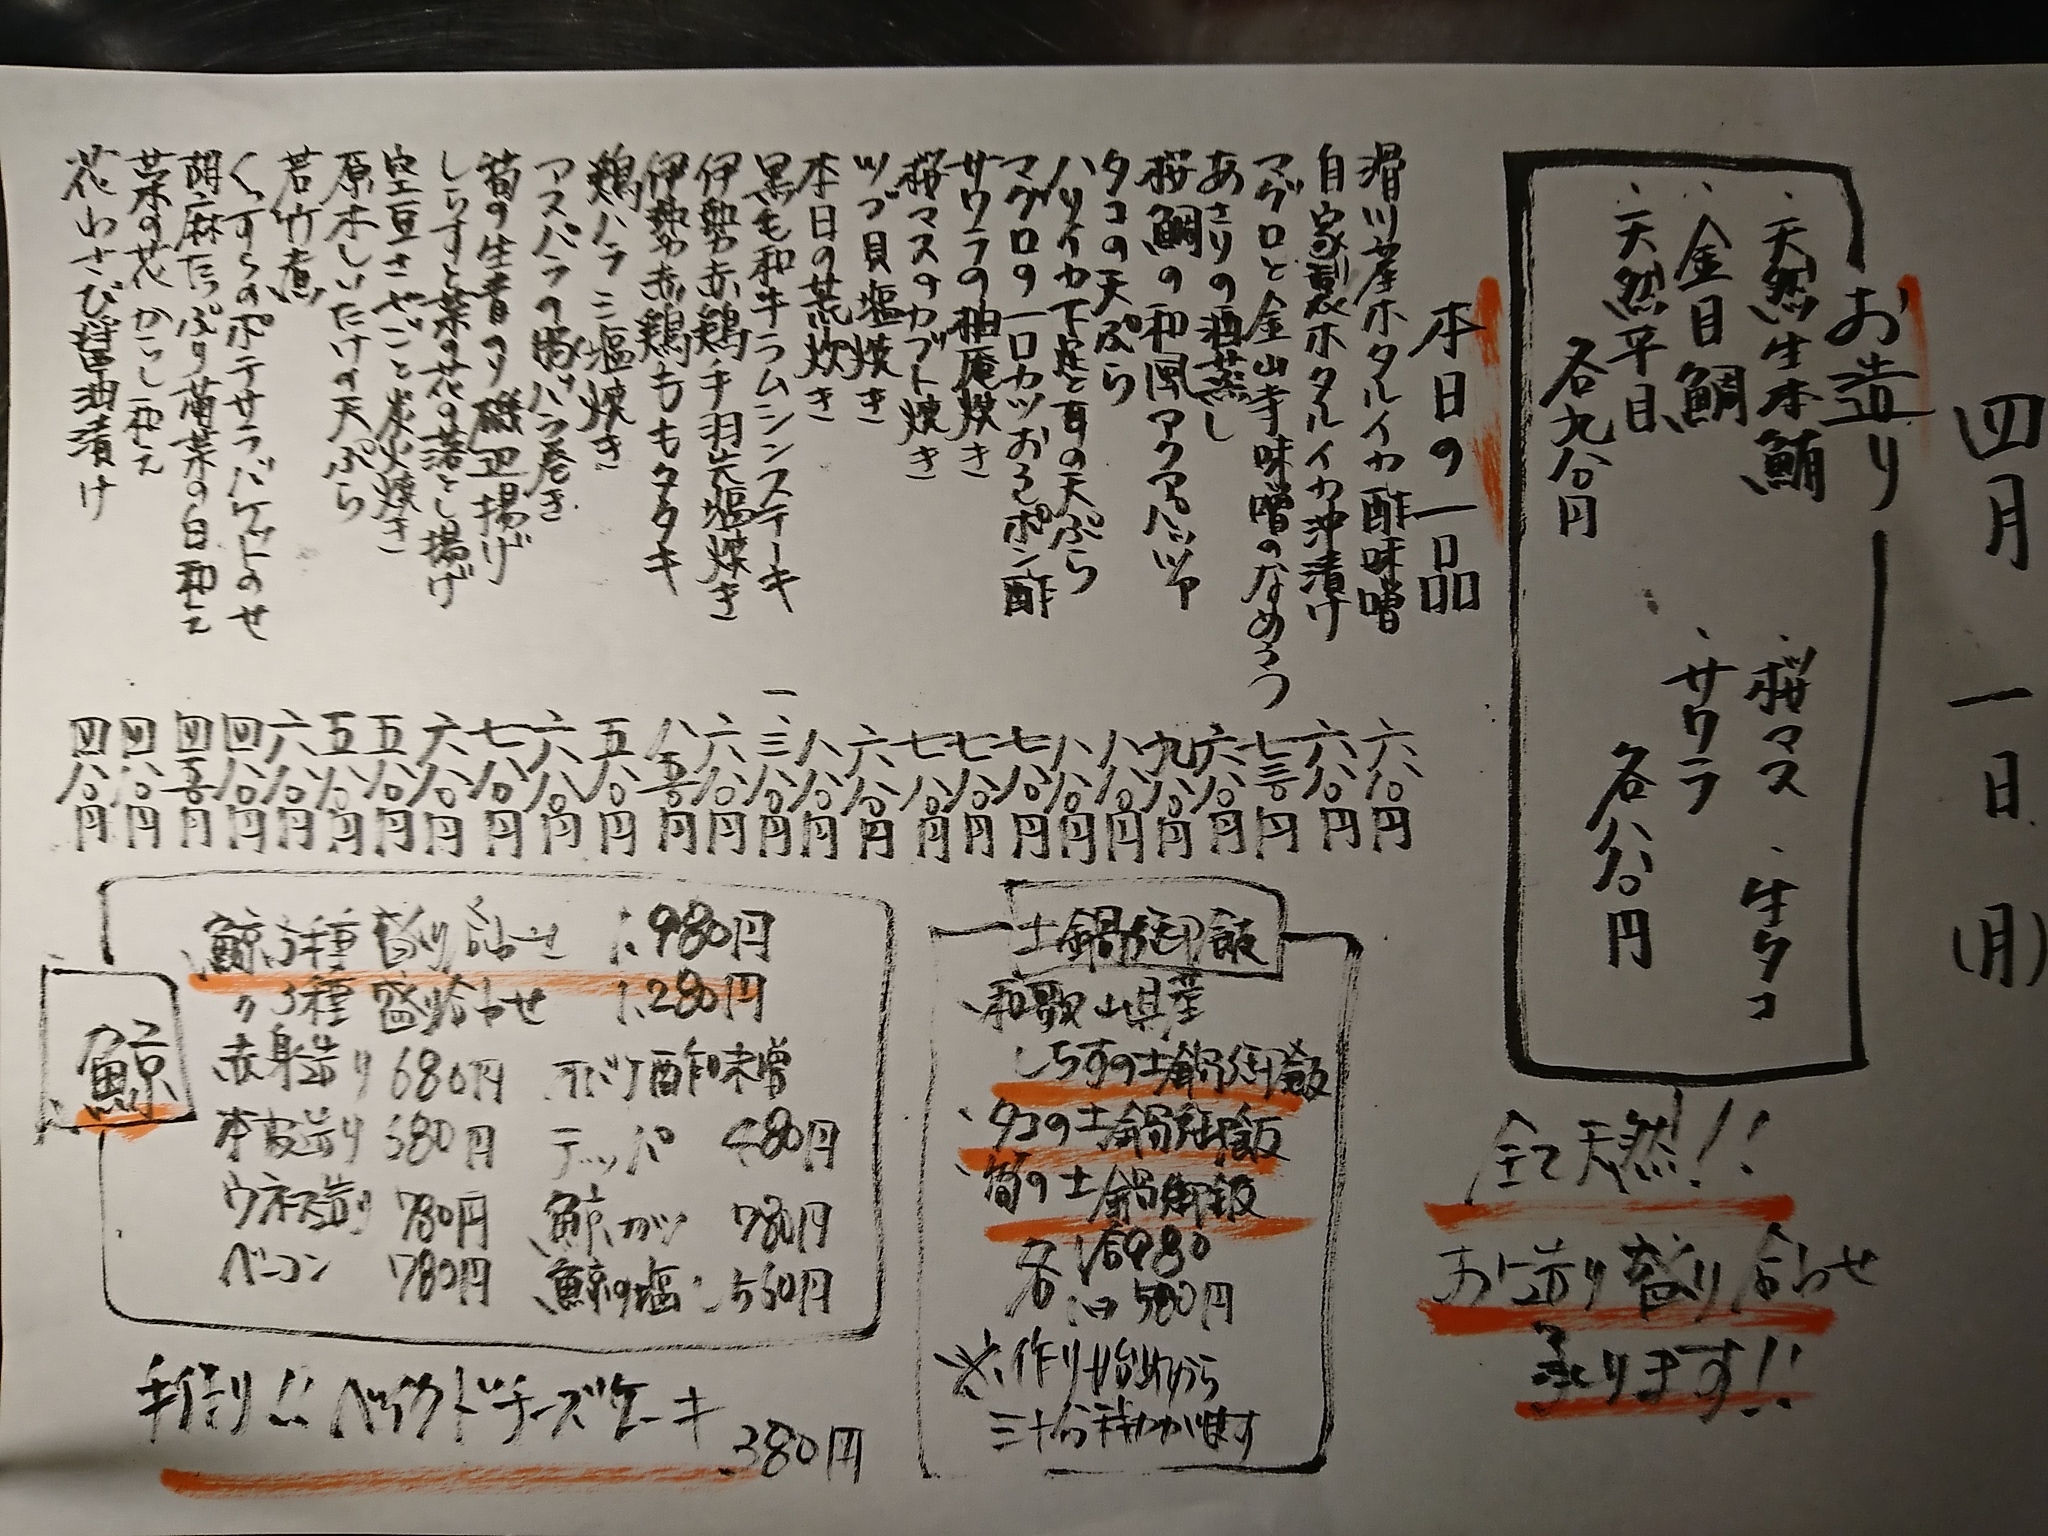 四月一日(月)
お造り
・天然生本鮪
・金目鯛
・天然平目
各九八〇円
・桜マス
・生タコ
・サワラ
各八八〇円
全て天然!!
お造り盛り合わせ
承ります!!
本日の一品
滑川産ホタルイカ酢味噌 六八〇円
自家製ホタルイカ沖漬け 六八〇円
マグロと金山寺味噌のなめろう 七三〇円
あさりの酒蒸し 六八〇円
桜鯛の和風アクアパッツァ 九八〇円
タコの天ぷら 八八〇円
ハリイカ下足と耳の天ぷら 八八〇円
マグロの一口カツおろしポン酢 七八〇円
サワラの柚庵焼き 七八〇円
桜マスのカブト焼き 七八〇円
ツブ貝塩焼き 六八〇円
本日の荒炊き 八八〇円
黒毛和牛ラムシンステーキ 一三八〇円
伊勢赤鶏手羽先塩焼き 六八〇円
伊勢赤鶏もものタタキ 八五〇円
鶏ハラミ塩焼き 五八〇円
アスパラの豚バラ巻き 六八〇円
筍の生青のり磯辺揚げ 七八〇円
しらすと菜の花の落とし揚げ 六八〇円
空豆さやごと炭火焼き 五八〇円
原木しいたけの天ぷら 五八〇円
若竹煮 六八〇円
くずらのポテサラバケットのせ 四八〇円
胡麻たっぷり菊菜の白和え 四五〇円
菜の花からし和え 四八〇円
花わさび醤油漬け 四八〇円
土鍋御飯
和歌山県産
しらすの土鍋御飯
・タコの土鍋御飯
・筍の土鍋御飯
各1合980
各 580円
※作り始めから
三十分程かかります
鯨
鯨5種盛り合わせ 1,980円
〃3種盛り合わせ 1,280円
赤身造り 680円
本皮造り 580円
ウネス造り 780円
ベーコン 780円
オバケ酢味噌
テッパ 480円
鯨カツ 780円
鯨の塩 550円
手作り!! ベイクドチーズケーキ 380円